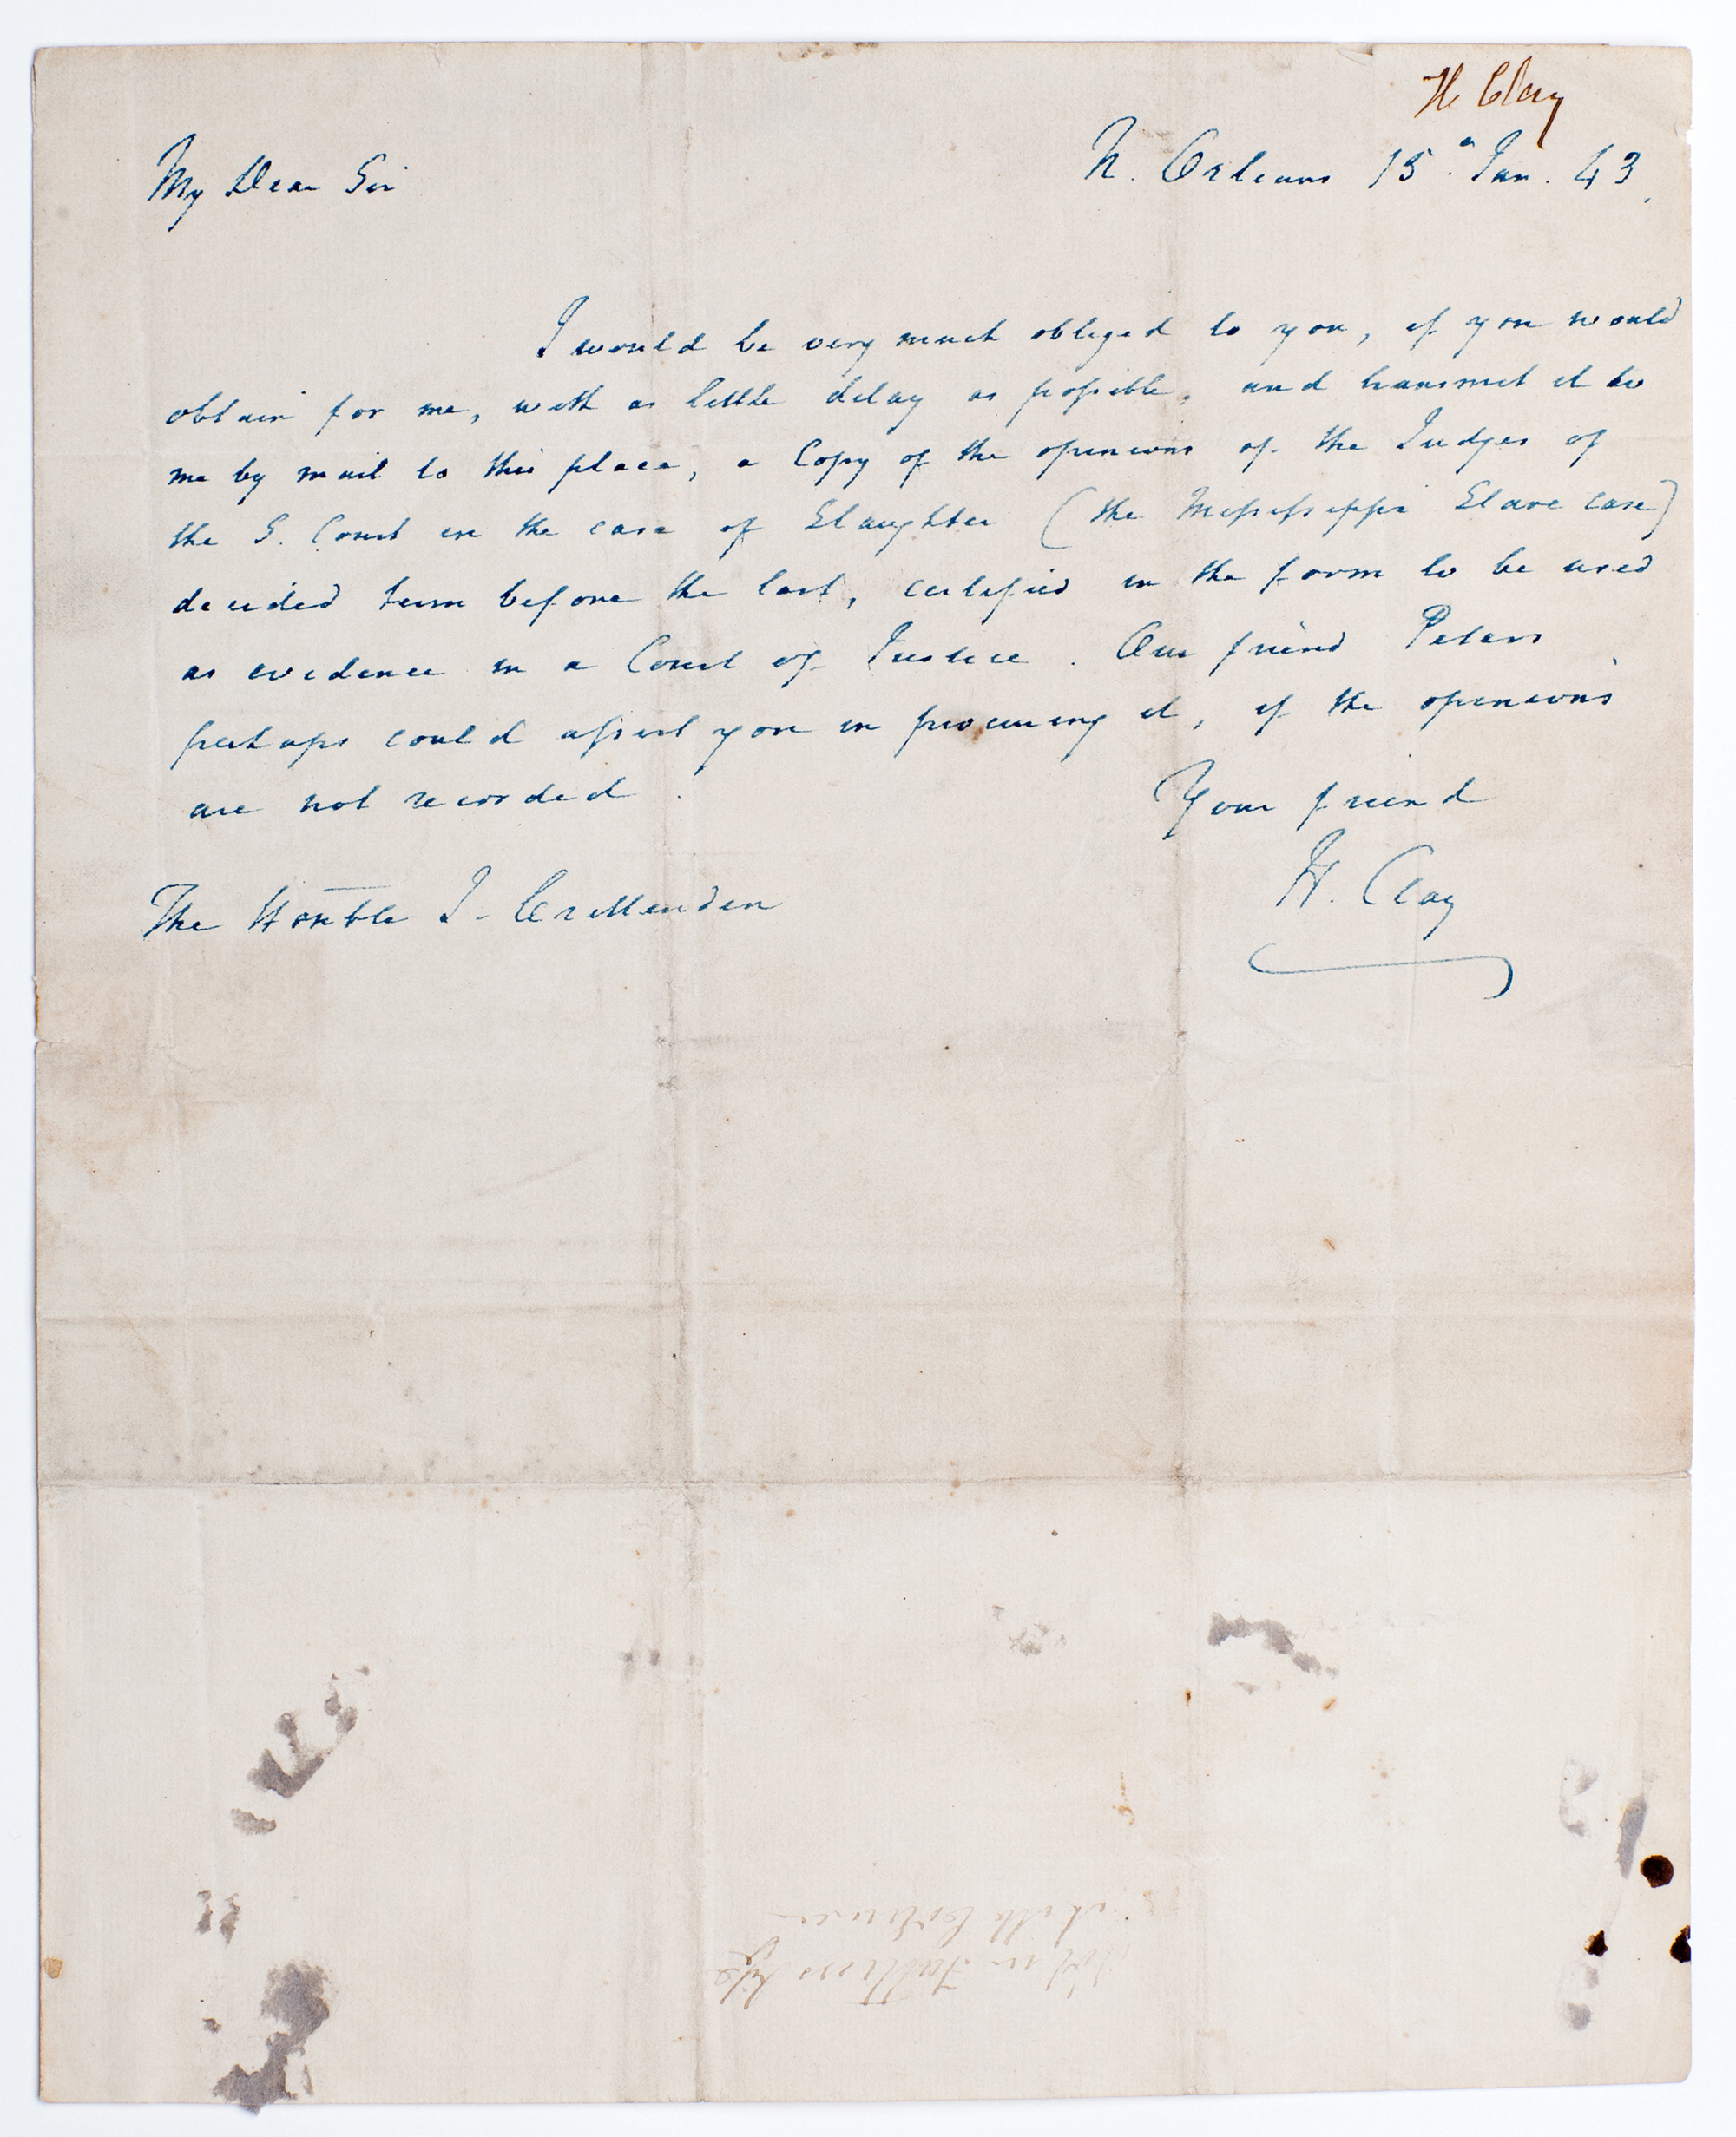 H Clay
N. Orleans 15th Jan. 43.
My Dear Sir
I would be very much obliged to you, if you would
obtain for me, with as little delay as possible, and transmit it to
me by mail to this place, a Copy of the opinions of the Judges of
the S. Court in the case of Slaughter (the Mississippi Slave case)
decided term before the last, certified in the form to be used
as evidence in a Court of Justice. Our friend Peters
perhaps could assist you in procuring it, if the opinions
are not recorded.
Your friend
H. Clay
The Honble J. Crittenden